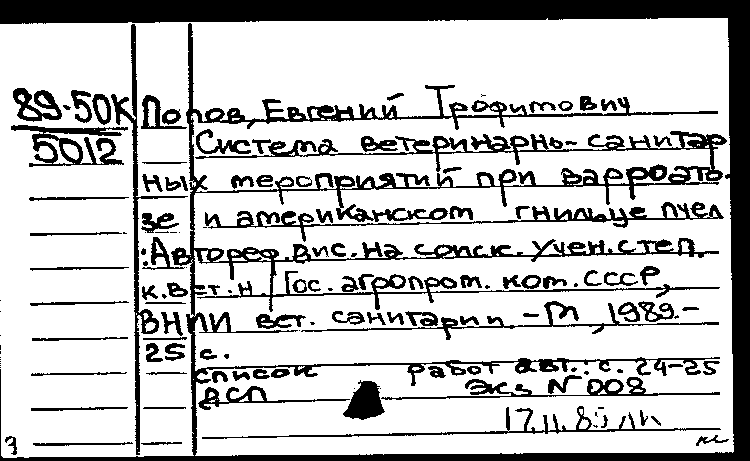 89-50К Попов, Евгений Трофимович
5012 Система ветеринарно-санитар
ных мероприятий при варроато-
зе и американском гнильце пчел
: Автореф. дис. на соиск. учен. степ.
к. вет. н. / Гос. агропром. ком. СССР,
ВНИИ вет. санитарии. - М, 1989. -
25 с.
список работ авт.: с. 24-25
ДСП Экз № 008
17.11.89